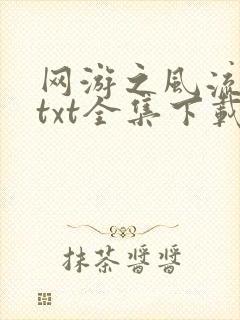 网游之风流
txt全集下载
抹茶酱酱